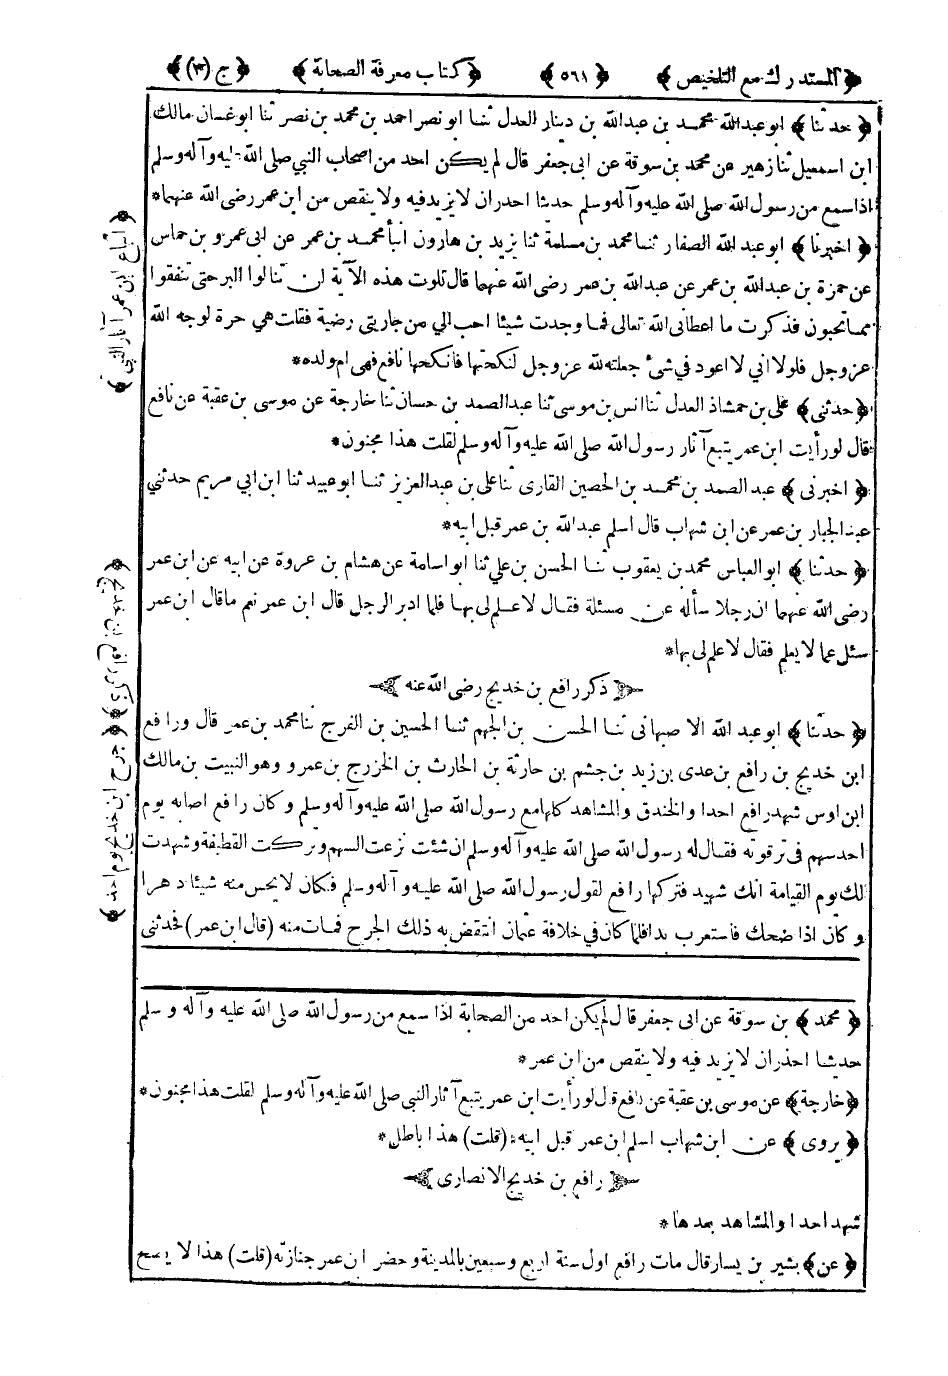 ﴿ المستدرك مع التلخيص ﴾ ﴿ ٥٦١ ﴾ ﴿ كتاب معرفة الصحابة ﴾ ﴿ ج (٣) ﴾
﴿ حدثنا ﴾ ابو عبد الله محمد بن عبد الله بن دينار العدل ثنا ابو نصر احمد بن محمد بن نصر ثنا ابو غسان مالك
ابن اسمعيل ثنا زهير عن محمد بن سوقة عن ابى جعفر قال لم يكن احد من اصحاب النبي صلى الله عليه وآله وسلم
اذا سمع من رسول الله صلى الله عليه وآله وسلم حديثا احدران لا يزيد فيه ولا ينقص من ابن عمر رضى الله عنهما*
﴿ اخبرنا ﴾ ابو عبد الله الصفار ثنا محمد بن مسلمة ثنا يزيد بن هارون انبأ محمد بن عمر عن ابى عمرو بن حماس
عن حمزة بن عبد الله بن عمر عن عبد الله بن عمر رضى الله عنهما قال تلوت هذه الآية لن تنالوا البر حتى تنفقوا
مما تحبون فذكرت ما اعطانى الله تعالى فما وجدت شيئا احب الي من جاريتى رضية فقلت هي حرة لوجه الله
عز وجل فلولا اني لا اعود في شئ جعلته لله عز وجل لنكحتها فانكحها نافع فهى ام ولده*
﴿ حدثنى ﴾ على بن حمشاذ العدل ثنا انس بن موسى ثنا عبد الصمد بن حسان ثنا خارجة عن موسى بن عقبة عن نافع
قال لو رأيت ابن عمر يتبع آثار رسول الله صلى الله عليه وآله وسلم لقلت هذا مجنون*
﴿ اخبرنى ﴾ عبد الصمد بن محمد بن الحصين القارى ثنا على بن عبد العزيز ثنا ابو عبيد ثنا ابن ابي مريم حدثني
عبد الجبار بن عمر عن ابن شهاب قال اسلم عبد الله بن عمر قبل ابيه*
﴿ حدثنا ﴾ ابو العباس محمد بن يعقوب ثنا الحسن بن علي ثنا ابو اسامة عن هشام بن عروة عن ابيه عن ابن عمر
رضى الله عنهما ان رجلا سأله عن مسئلة فقال لا علم لى بها فلما ادبر الرجل قال ابن عمر نعم ما قال ابن عمر
سئل عما لا يعلم فقال لا علم لى بها*
ذكر رافع بن خديج رضى الله عنه
﴿ حدثنا ﴾ ابو عبد الله الاصبهانى ثنا الحسن بن الجهم ثنا الحسين بن الفرج ثنا محمد بن عمر قال ورافع
ابن خديج بن رافع بن عدى بن زيد بن جشم بن حارثة بن الحارث بن الخزرج بن عمرو وهو النبيت بن مالك
ابن اوس شهد رافع احدا والخندق والمشاهد كلها مع رسول الله صلى الله عليه وآله وسلم وكان رافع اصابه يوم
احد سهم فى ترقوته فقال له رسول الله صلى الله عليه وآله وسلم ان شئت نزعت السهم وتركت القطيفة وشهدت
لك يوم القيامة انك شهيد فتركها رافع لقول رسول الله صلى الله عليه وآله وسلم فكان لا يحس منه شيئا دهرا
وكان اذا ضحك فاستعرب بدا فلما كان في خلافة عثمان انتقض به ذلك الجرح فمات منه (قال ابن عمر) فحدثنى
﴿ محمد ﴾ بن سوقة عن ابى جعفر قال لم يكن احد من الصحابة اذا سمع من رسول الله صلى الله عليه وآله وسلم
حديثا احذران لا يزيد فيه ولا ينقص من ابن عمر*
﴿ خارجة ﴾ عن موسى بن عقبة عن نافع قال لو رأيت ابن عمر يتبع آثار النبى صلى الله عليه وآله وسلم لقلت هذا مجنون*
﴿ يروى ﴾ عن ابن شهاب اسلم ابن عمر قبل ابيه (قلت) هذا باطل*
رافع بن خديج الانصارى
شهد احدا والمشاهد بعدها*
﴿ عن ﴾ بشير بن يسار قال مات رافع اول سنة اربع وسبعين بالمدينة وحضر ابن عمر جنازته (قلت) هذا لا يصح
﴿ اتباع ابن عمر آثار النبي ﴾
﴿ ذكر رافع بن خديج ﴾
﴿ جرح ابن خديج يوم احد ﴾